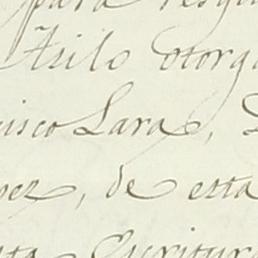 para
Asilo otorga
cisco Lara,
pez, de esta
Escritura